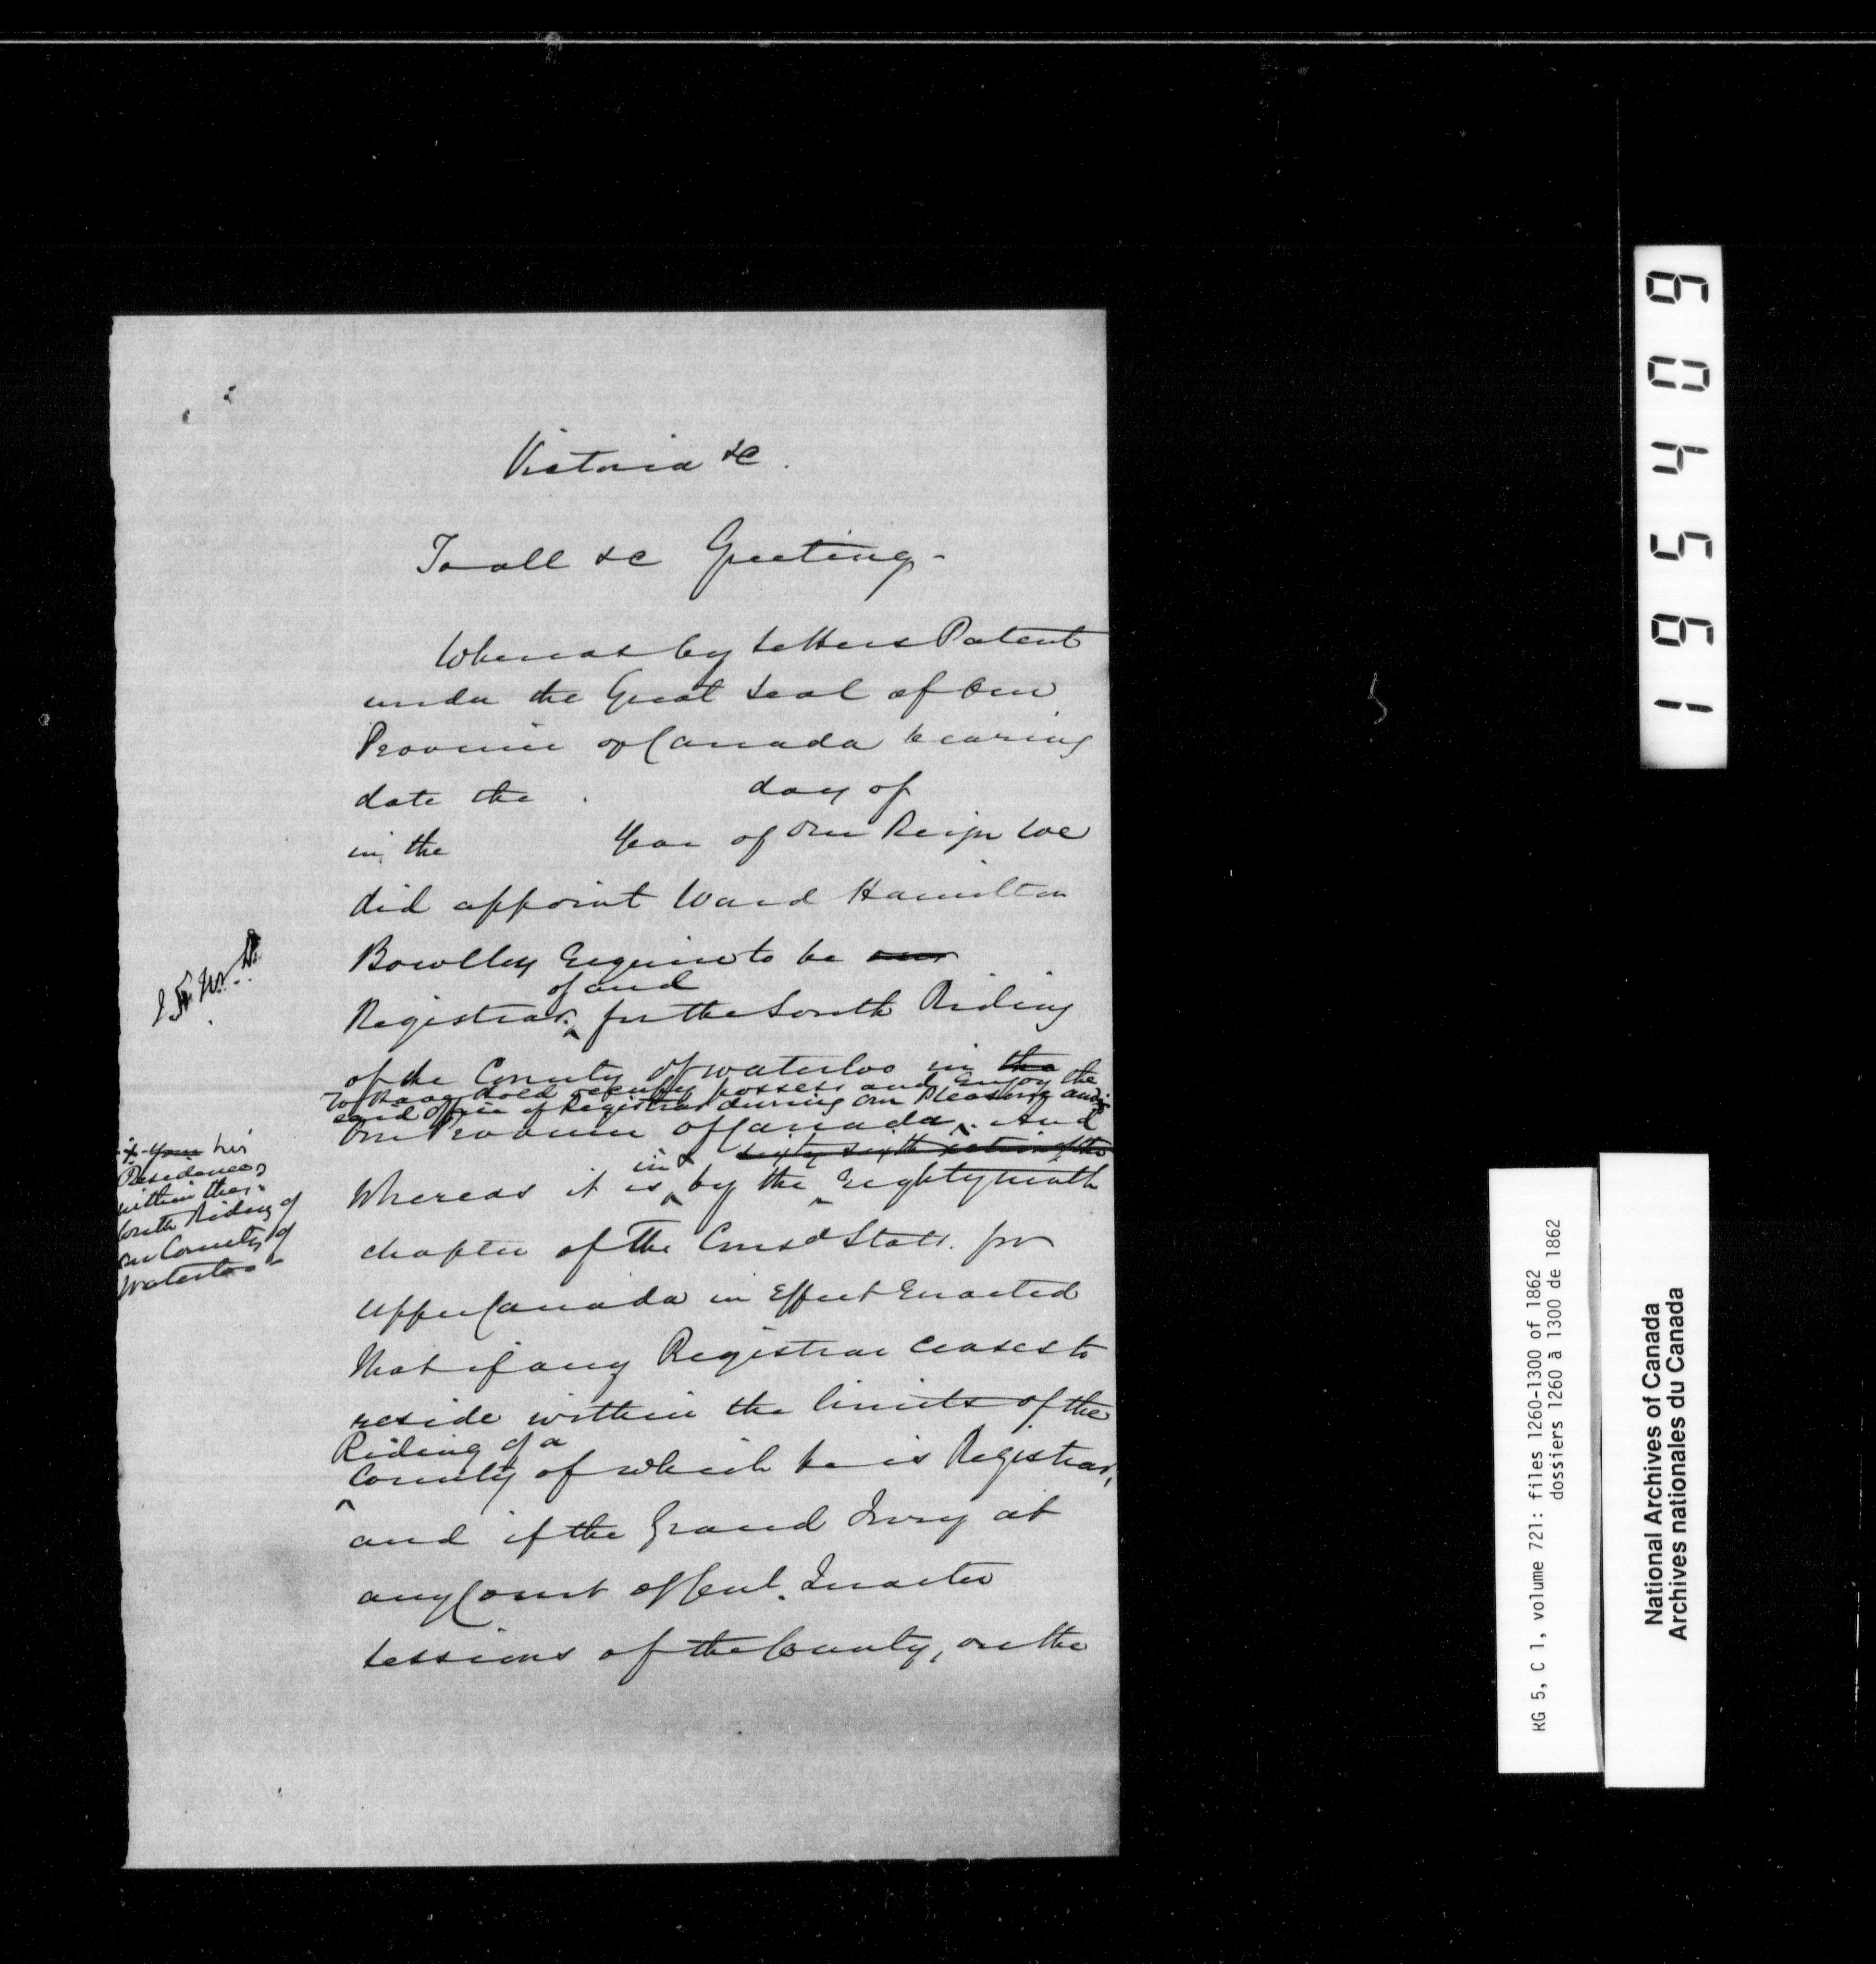 Victoria &c.
To all &c Greeting-
Whereas by Letters Patent
under the Great Seal of Our
Province of Canada bearing
date the day of
in the Year of Our Reign We
did appoint Ward Hamilton
Bowlby Esquire to be our
of and
Registrar for the South Riding
of the County of Waterloo in the
To Have Hold occupy possess and Enjoy the
said Office of Registrar during Our Pleasure and
Our Province of Canada. And
in & sixty sixth section of the
Whereas it is by the Eightyninth
chapter of the Consd Stats. for
Upper Canada in Effect Enacted
that if any Registrar ceases to
reside within the limits of the
Riding of a
County of which he is Registrar,
and if the Grand Jury at
any Court of Genl. Quarter
Sessions of the County, or the
his
Residence
within the
South Riding of
our County of
Waterloo
195409
RG 5, C 1, volume 721: files 1260-1300 of 1862
dossiers 1260 à 1300 de 1862
National Archives of Canada
Archives nationales du Canada